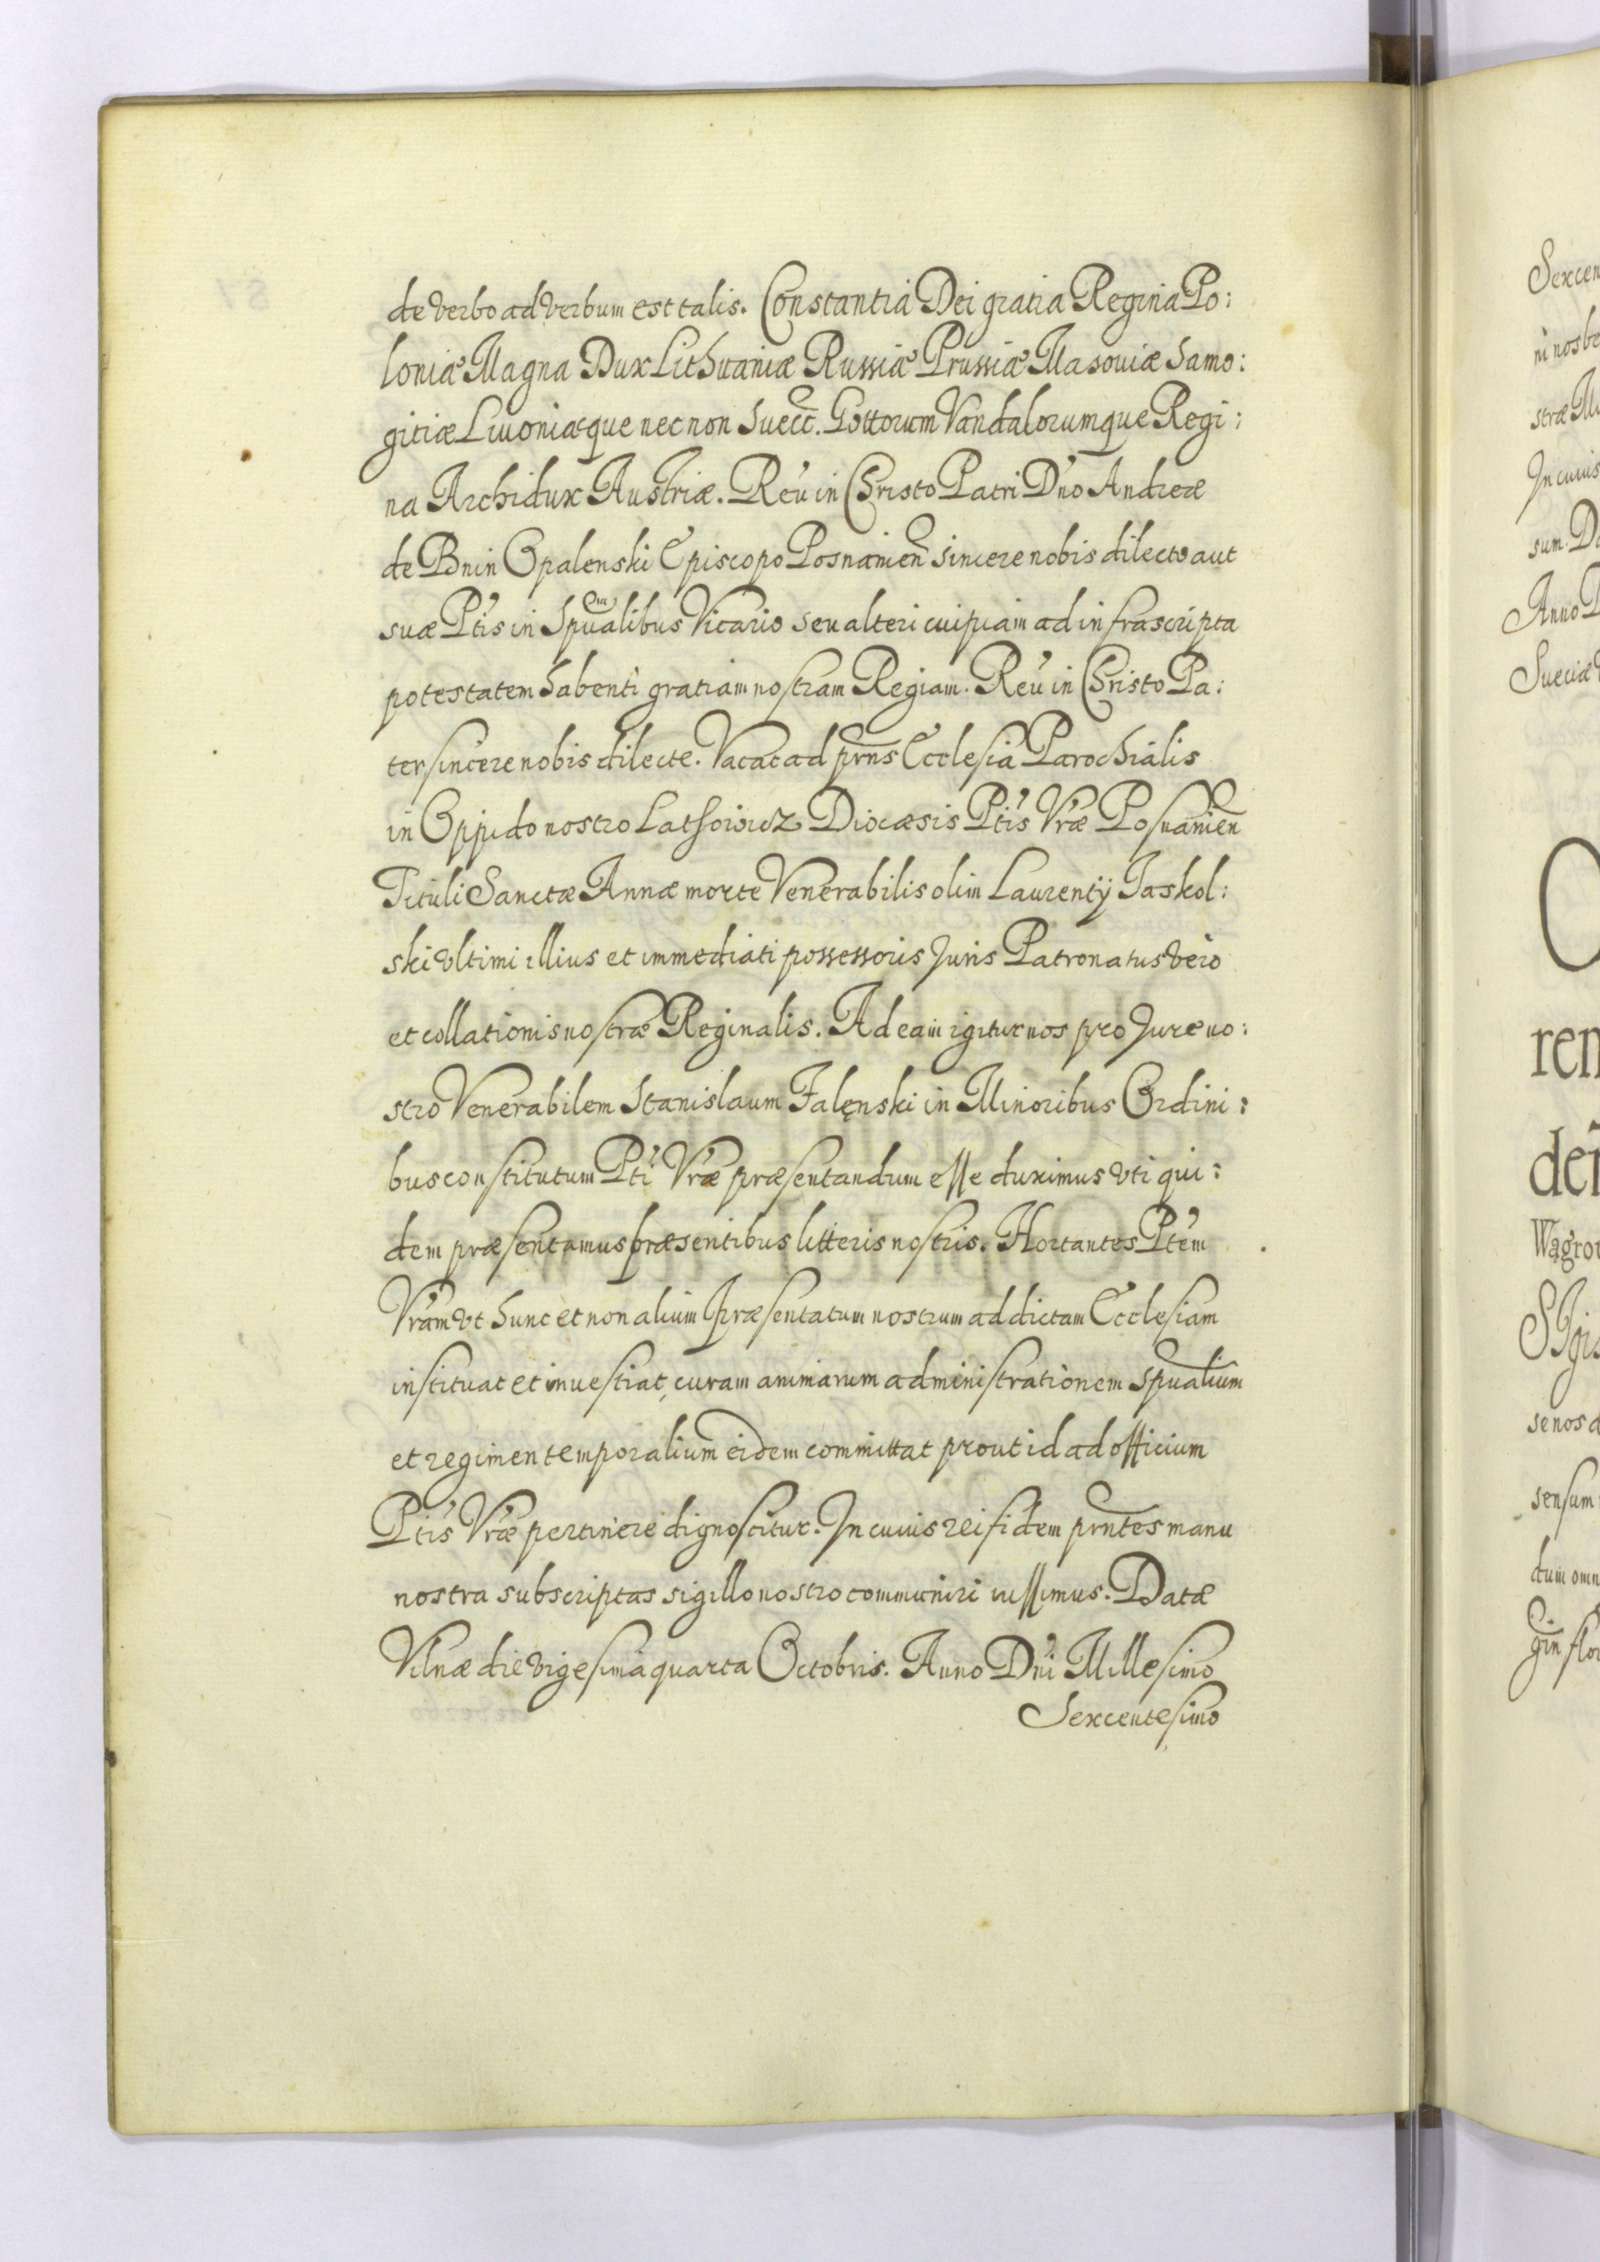 de verbo ad verbum est talis. Constantia Dei gratia Regina Po:
loniæ Magna Dux Lithuaniæ Russiæ Prussiæ Masouiæ Samo:
gitiæ Liuoniæque nec non Suecc. Gottorum Vandalorumque Regi:
na Archidux Austriæ. Reu in Christo Patri D'no Andreæ
de Bnin Opalenski Episcopo Posnanien sincere nobis dilecto aut
suæ Ptis in Spualibus Vicario seu alteri cuipiam ad infrascripta
potestatem habenti gratiam nostram Regiam. Reu in Christo Pa:
ter sincere nobis dilecte. Vacat ad prns Ecclesia Parochialis
in Oppido nostro Diocæsis Ptis Vræ Posnanien
Tituli Sanctæ Annæ morte Venerabilis olim Laurentij Jaskol:
ski vltimi illius et immediati possessoris Juris Patronatus vero
et collationis nostræ Reginalis. Ad eam igitur nos pro Jure no:
stro Venerabilem Stanislaum Falęnski in Minoribus Ordini:
bus constitutum Pti Vræ præsentandum esse duximus vti qui:
dem præsentamus præsentibus litteris nostris. Hortantes Ptem
Vram vt hunc et non alium Præsentatum nostrum ad dictam Ecclesiam
instituat et inuestiat, curam animarum administrationem spualium
et regimen temporalium eidem committat prout id ad officium
Ptis Vræ pertinere dignoscitur. In cuius rei fidem prntes manu
nostra subscriptas sigillo nostro communiri iussimus. Datæ
Vilnæ die vigesima quarta Octobris. Anno Dni Millesimo
Sexcentesimo
Sexcen
ni nos be
stræ
In cuius
sum. Da
Anno D
Sueciæ
ren
den
Wagro
SIgis
se nos a
sensum
dum omn
gin flor